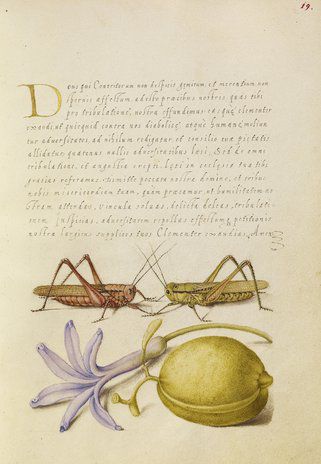 19.
Deus qui Contritorum non despicis gemitum, et merentium non
spernis affectum, adesto precibus nostris, quas tibi
pro tribulatione, nostra effundimus easque clementer
exaudi, ut quicquid contra nos diabolicę atque humanę
tur adversitatis ad nihilum redigatur et consilio tuę pietatis
allidatur, quatenus nullis adversitatibus lesi, sed de omni
tribulatione, et angustia erepti lęti in ecclesia tua tibi
gratias referamus. dimitte peccata nostra domine, et tribue
nobis misericordiam tuam, quam precamur ut humilitatem no
stram attendas, vincula solvas, delicta deleas, tribulati-
onem inspicias, adversitatem repellas effectumq petitionis
nostrę largiens supplices tuos Clementer exaudias, Amen